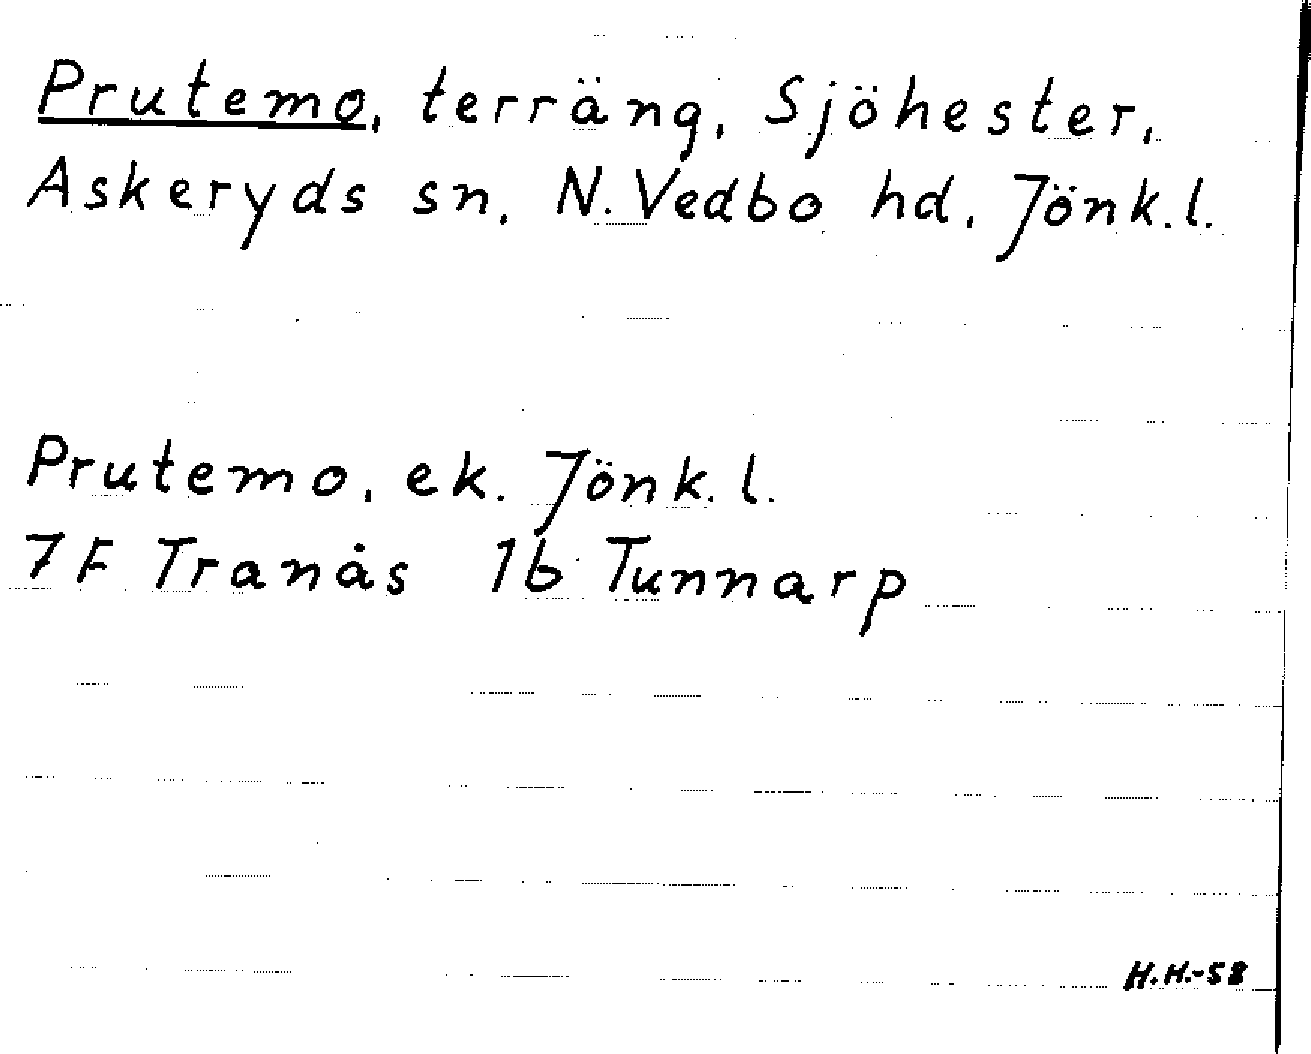 Prutemo, terräng, Sjöhester,
Askeryds sn, N. Vedbo hd, Jönk.l.
Prutemo, ek. Jönk.l.
7F Tranås 1b Tunnarp
H.H.-58